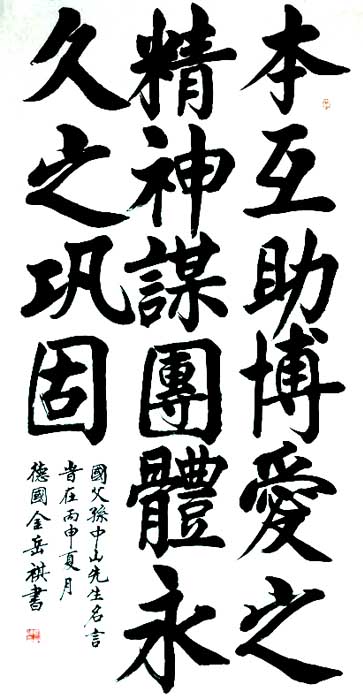 本互助博愛之
精神謀團體永
久之巩固
國父孫中山先生名言
旹在丙申夏月
德國金岳祺書